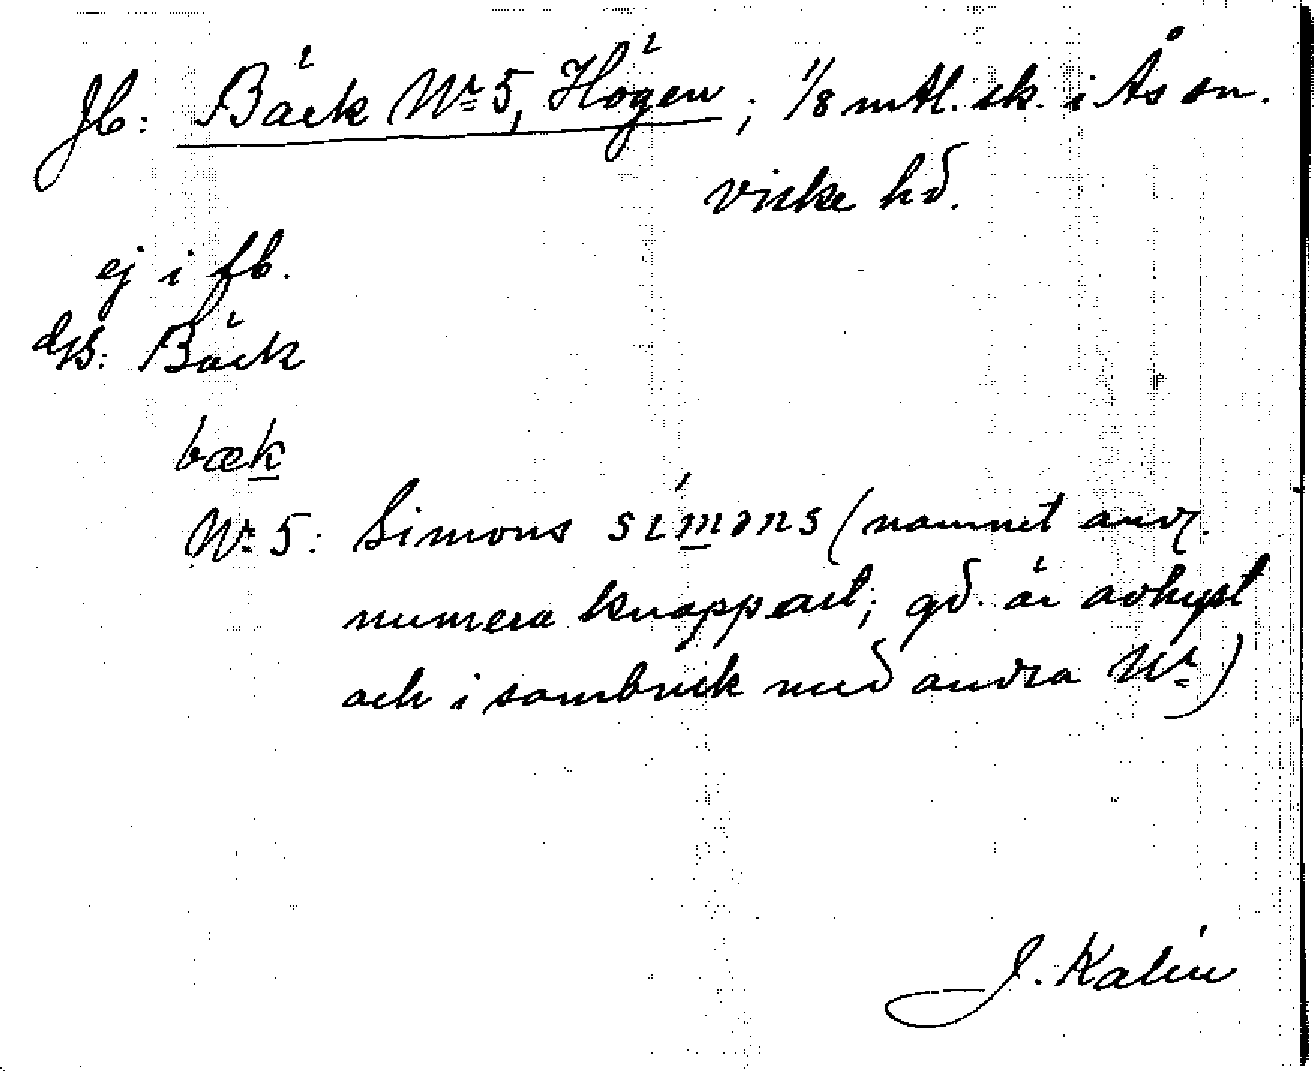 Jb: Bäck Nr 5, Högen; 1/8 mtl. sk. i Ås sn.
Viske hd.
ej i fb.
Bäck
bæk
Nr 5: Simons simɔns (namnet anv.
numera knappast; gd. är avhyst
och i sambruk med andra Nr)
J. Kalén